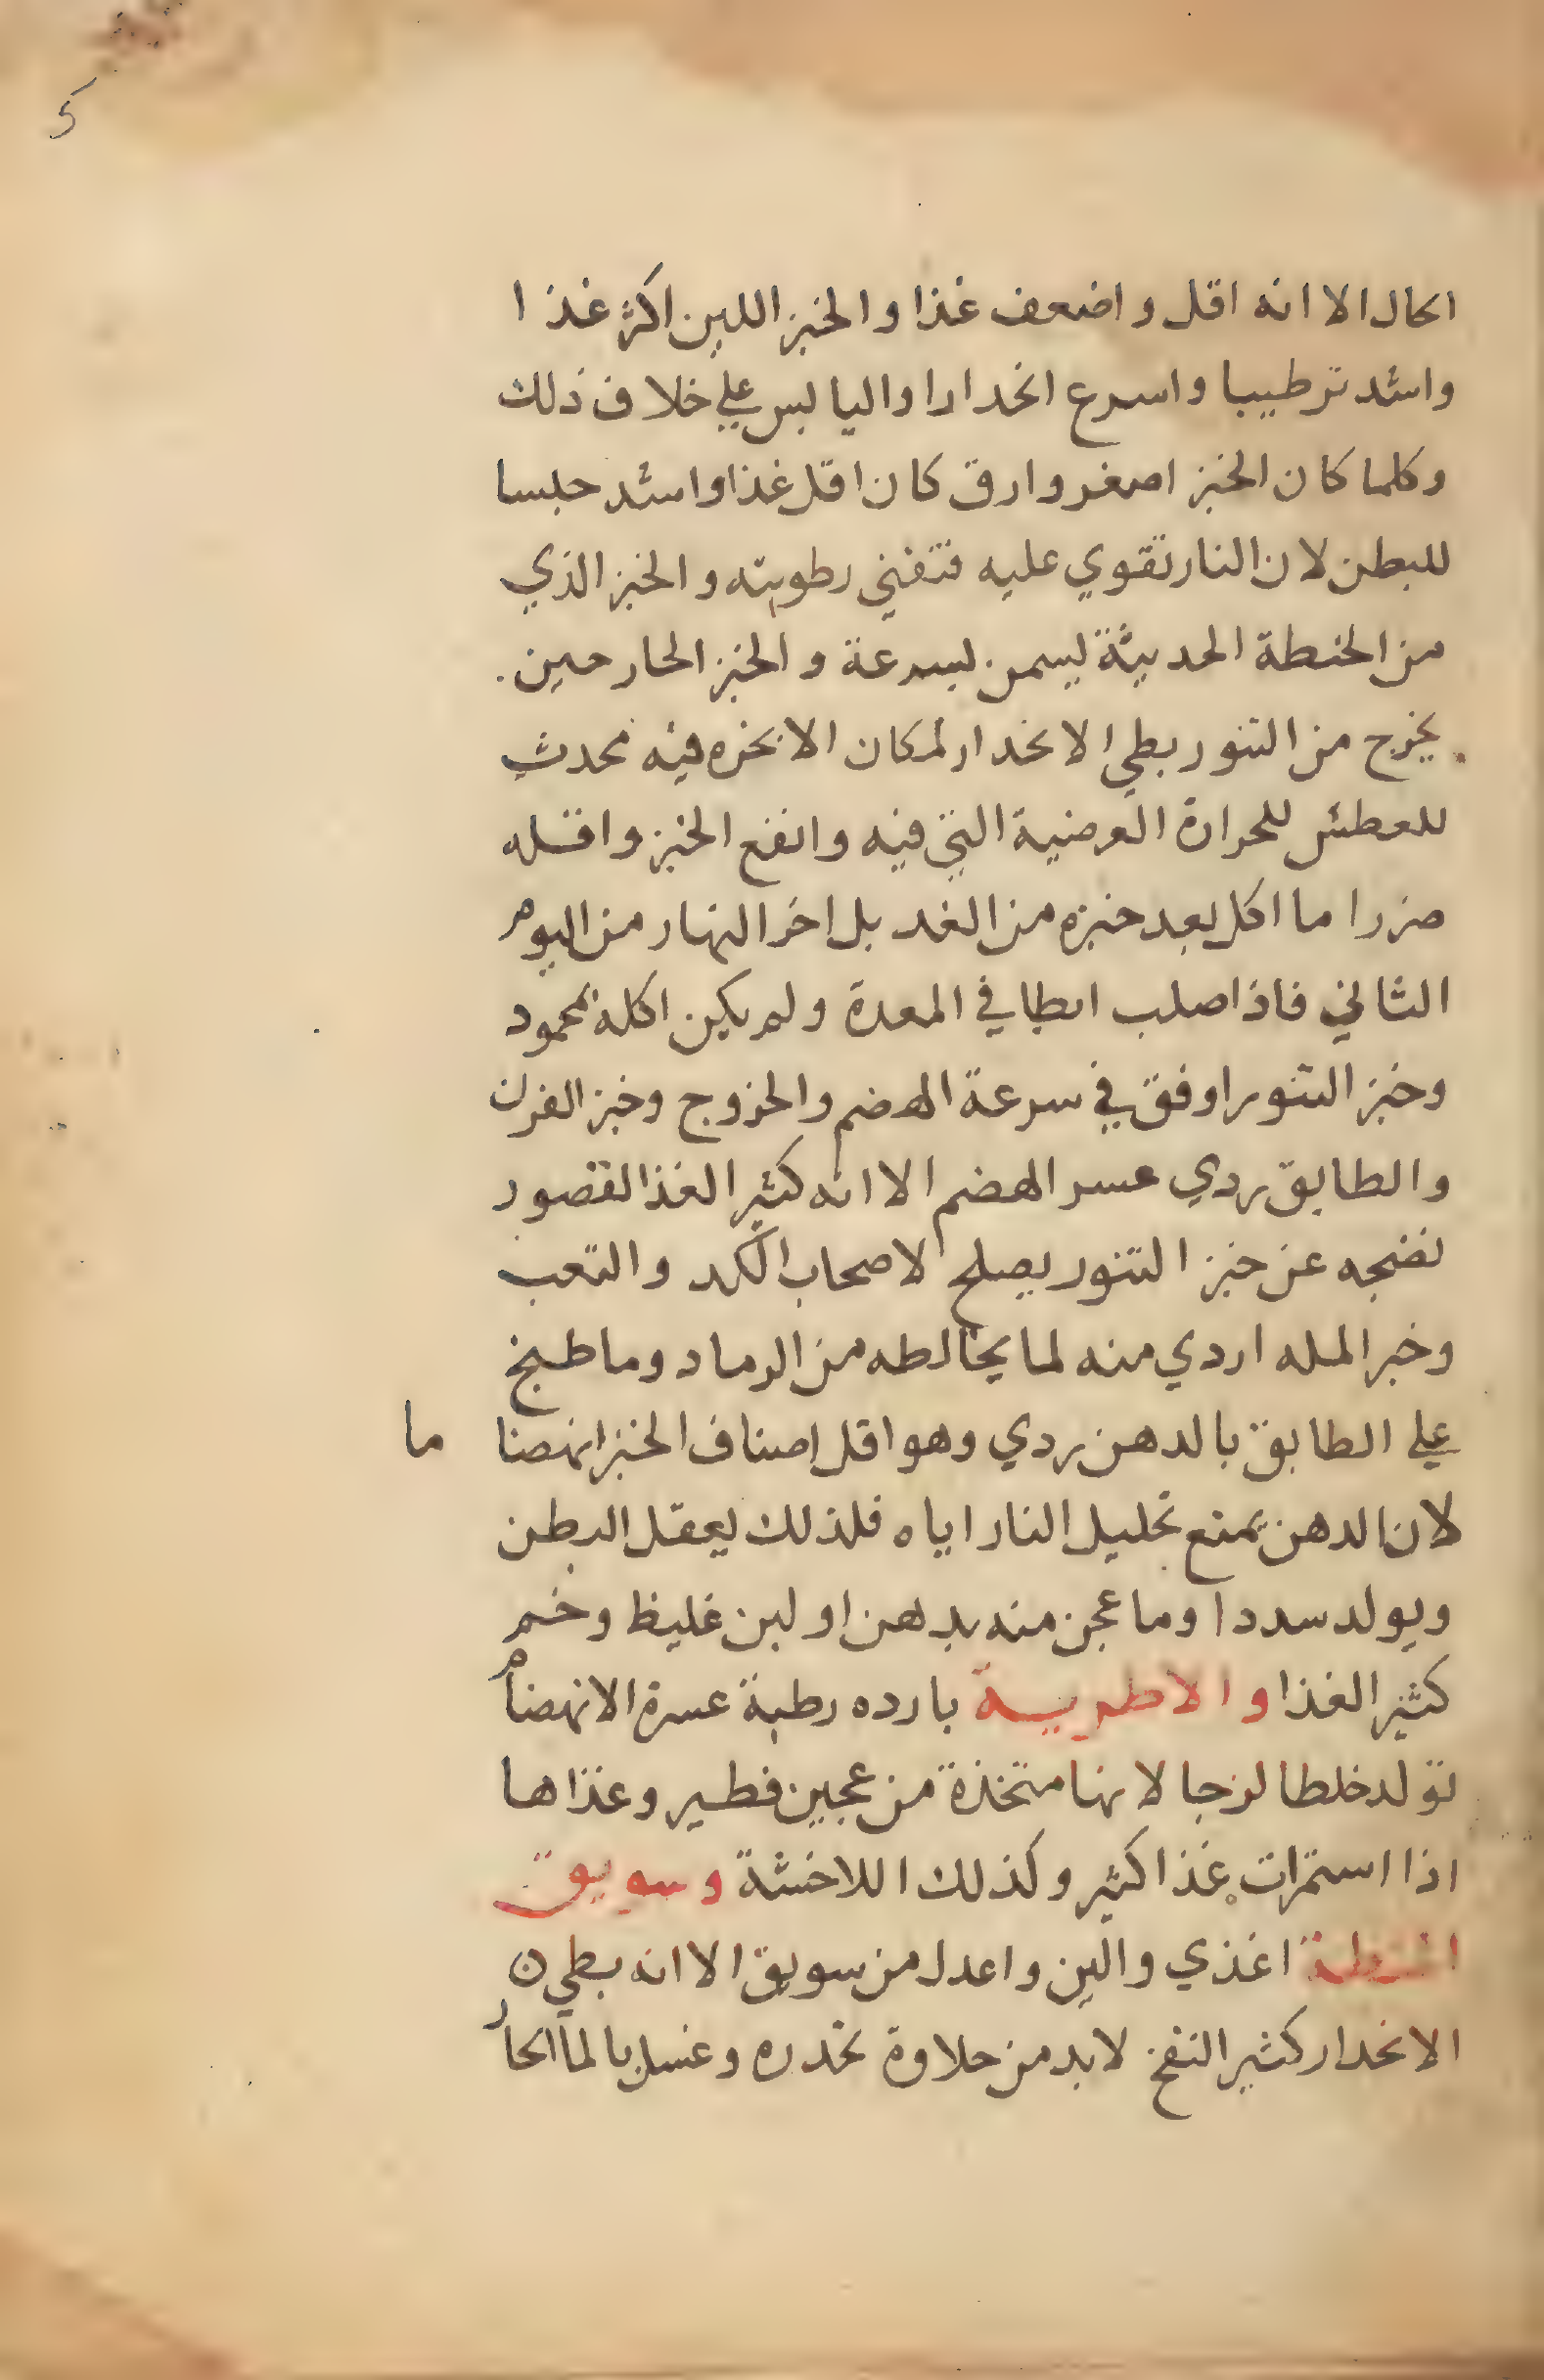 5
الحال الا انه اقل واضعف غذا والخبز اللين اكثر غذا
واشد ترطيبا واسرع انحدارا واليابس علي خلاف ذلك
وكلما كان الخبز اصغر وارق كان اقل غذا واشد حبسا
للبطن لان النار تقوي عليه فتفني رطوبته والخبز الذي
من الحنطة الحديثة يسمن بسرعة والخبز الحار حين
يخرج من التنور بطي الانحدار لمكان الابخره فيه محدث
للعطش للحرارة العرضية التي فيه وانفع الخبز واقله
ضررا ما اكل بعد خبزه من الغد بل اخر النهار من اليوم
الثاني فاذا صلب ابطا في المعدة ولم يكن اكله محمود
وخبز التنور اوفق في سرعة الهضم والخروج وخبز الفرن
والطابق ردي عسر الهضم الا انه كثير الغذا لقصور
نضجه عن خبز التنور يصلح لاصحاب الكد والتعب
وخبر المله اردي منه لما يخالطه من الرماد وما طبخ
علي الطابق بالدهن ردي وهو اقل اصناف الخبز انهضا ما
لان الدهن يمنع تحليل النار اياه فلذلك يعقل البطن
ويولد سددا وما عجن منه بدهن او لبن غليظ وخم
كثير الغذا والاطرية بارده رطبة عسرة الانهضام
تولد خلطا لزجا لانها متخذة من عجين فطير وغذاها
اذا استمرات غذا كثير وكذلك اللاخشة وسويق
الحنطة اغذي والين واعدل من سويق الا انه بطي ن
الانحدار كثير النفخ لابد من حلاوة تحدره وغسل بالما الحار